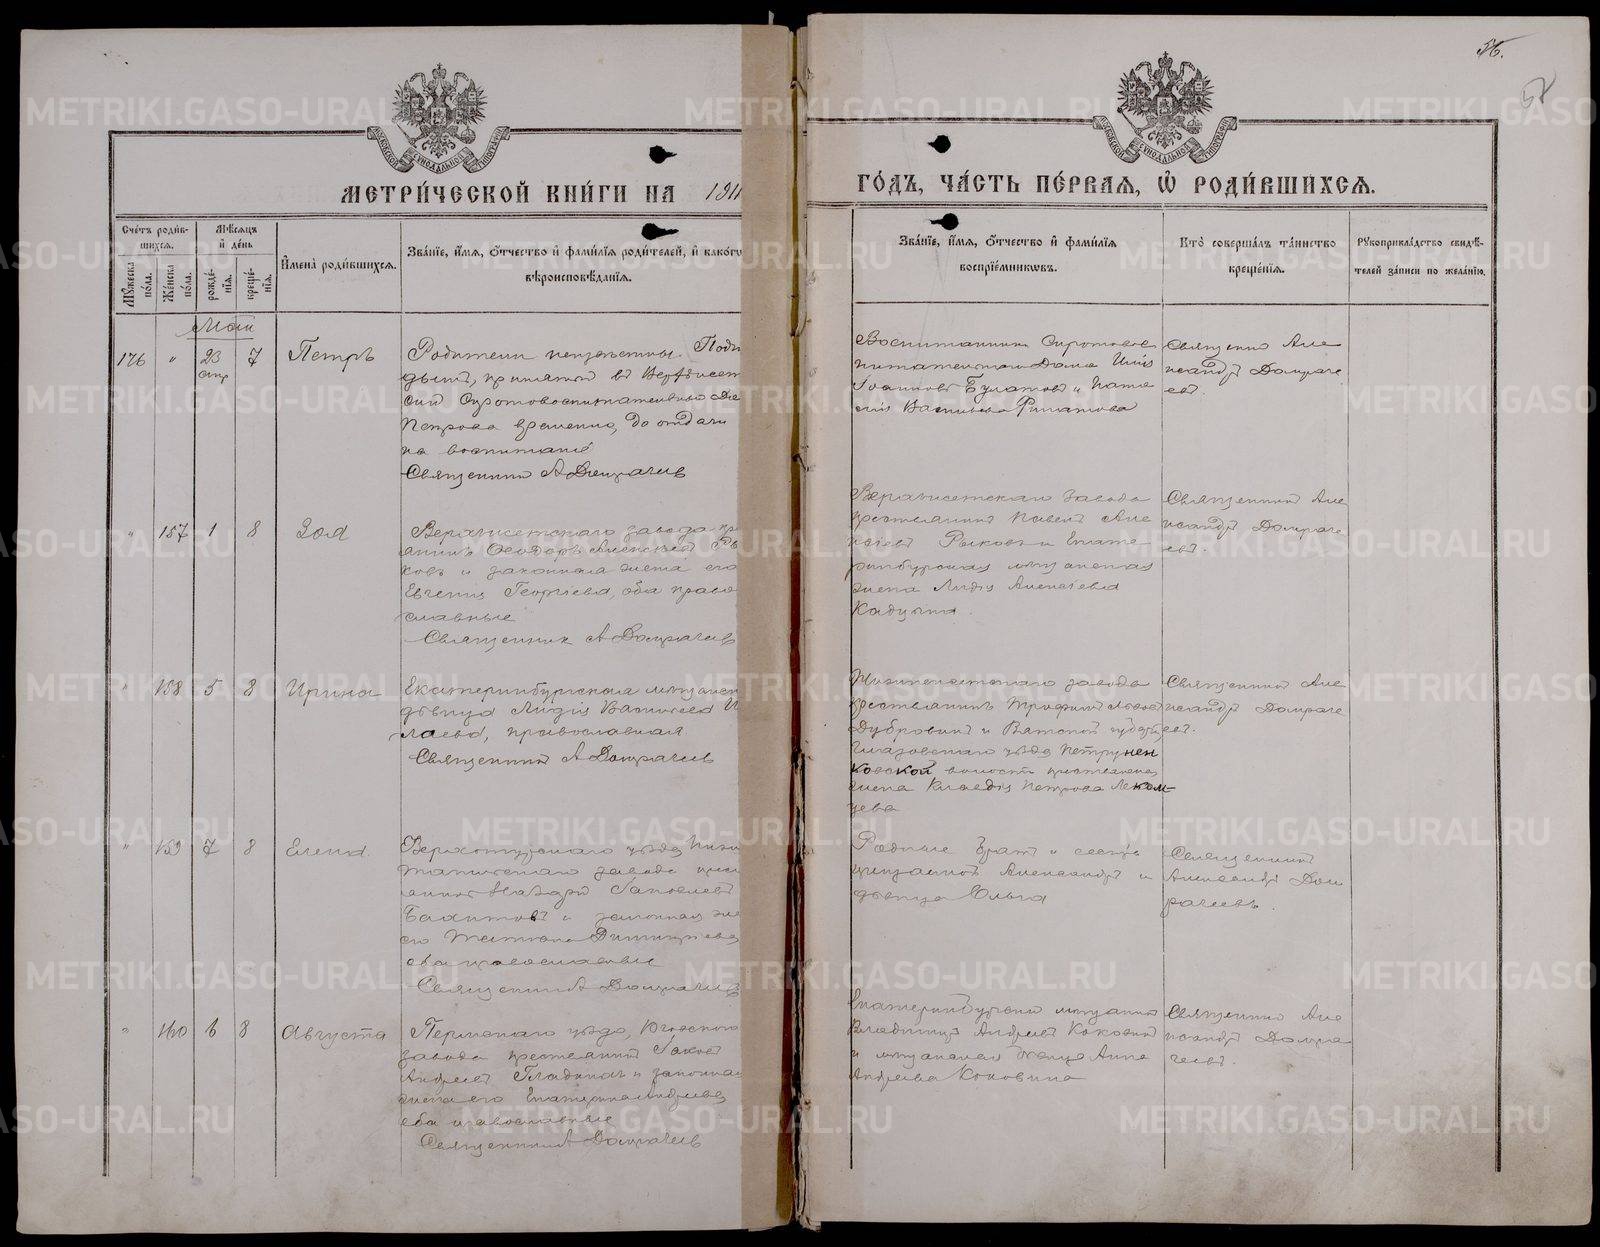 56.
57
МЕТРИ́ЧЕСКОЙ КНИ́ГИ НА 191
ГО́ДЪ, ЧА́СТЬ ПЕ́РВАЯ, Ѡ РОДИ́ВШИХСЯ.
Сче́тъ роди́в-
шихся.
Му́жеска по́ла.
Же́нска по́ла.
Мѣ́сяцъ
и́ де́нь
рожде́-
нїя.
креще́-
нїя.
И҆мена̀ роди́вшихся.
Зва́нїе, и҆́мя, ѻ҆́тчество и҆ фами́лїя роди́телей, и҆ како́гѡ
вѣроисповѣ́данїя.
Зва́нїе, и҆́мя, ѻ҆́тчество и҆ фами́лїя
воспрїе́мникѡвъ.
Кто̀ соверша́лъ та́инство
креще́нїя.
Рукоприкла́дство свидѣ́-
телей за́писи по жела́нїю.
Май
176 " 23 7 Петръ
апр
Родители неизвѣстны. Подки
дышъ, принятъ въ Верхъисет
ский Сиротовоспитательный До
Петрова временно, до отдачи
на воспитаніе
Священникъ А Домрачевъ
Воспитанникъ Сиротовос
питательнаго Дома
Іоанновъ Булатовъ и
Васильева Филатова
Священникъ Але
ксандръ Домраче
евъ.
" 157 1 8 Зоя
Верхъисетскаго завода кре
янинъ Ѳеодоръ Алексѣевъ Ры
ковъ и законная жена его
Евгенія Георгіева, оба право
славные
Священник А Домрачевъ
Верхъисетскаго завода
крестьянинъ Павелъ Але
ксѣевъ Рыковъ и Екате
ринбургская мѣщанская
жена Лидія Алексѣева
Священникъ Але
ксандръ Домраче
евъ.
" 158 5 8 Ирина
Екатеринбургская мѣщанск
дѣвица Лидія Васильева
лаева, православная
Священникъ А Домрачевъ
Нижнеисетскаго завода
крестьянинъ Трофимъ Львовъ
Дубровинъ и Вятской губерн
Глазовскаго уѣзда Петрунен
ковской волости крестьянска
жена Клавдія Петрова Леком-
цева
Священникъ Але
ксандръ Домраче
евъ.
" 159 7 8 Елена.
Верхотурскаго уѣзда Нижне
Тагильскаго завода крест
янинъ Назарій Іаковлевъ
и законная же
его Татіана Димитріева
оба православные
Священникъ А Домрачевъ
Родные братъ и сестра
Александръ и
дѣвица Ольга
Священникъ
Александръ Дом
рачеевъ.
" 160 6 8 Августа
Пермскаго уѣзда, Юговского
завода крестьянинъ Іаковъ
Андреевъ Гладкихъ и законная
жена его Екатерина Андреева
оба православные
Священникъ А Домрачевъ
Екатеринбургский мѣщанинъ
Владиміръ Андреевъ Коковинъ
и мѣщанская Анна
Андреева Коковина
Священникъ Але
ксандръ Домра
чеевъ.
METRIKI.GASO-URAL.RU